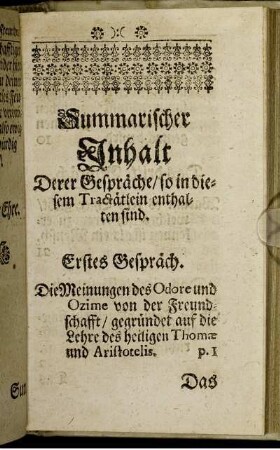 Summarischer
Inhalt
Derer Gespräche/ so in die-
sem Tractätlein enthal-
ten sind.
Erstes Gespräch.
Die Meinungen des Odore und
Ozime von der Freund-
schafft/ gegründet auf die
Lehre des heiligen Thomæ
und Aristotelis. p. 1
Das